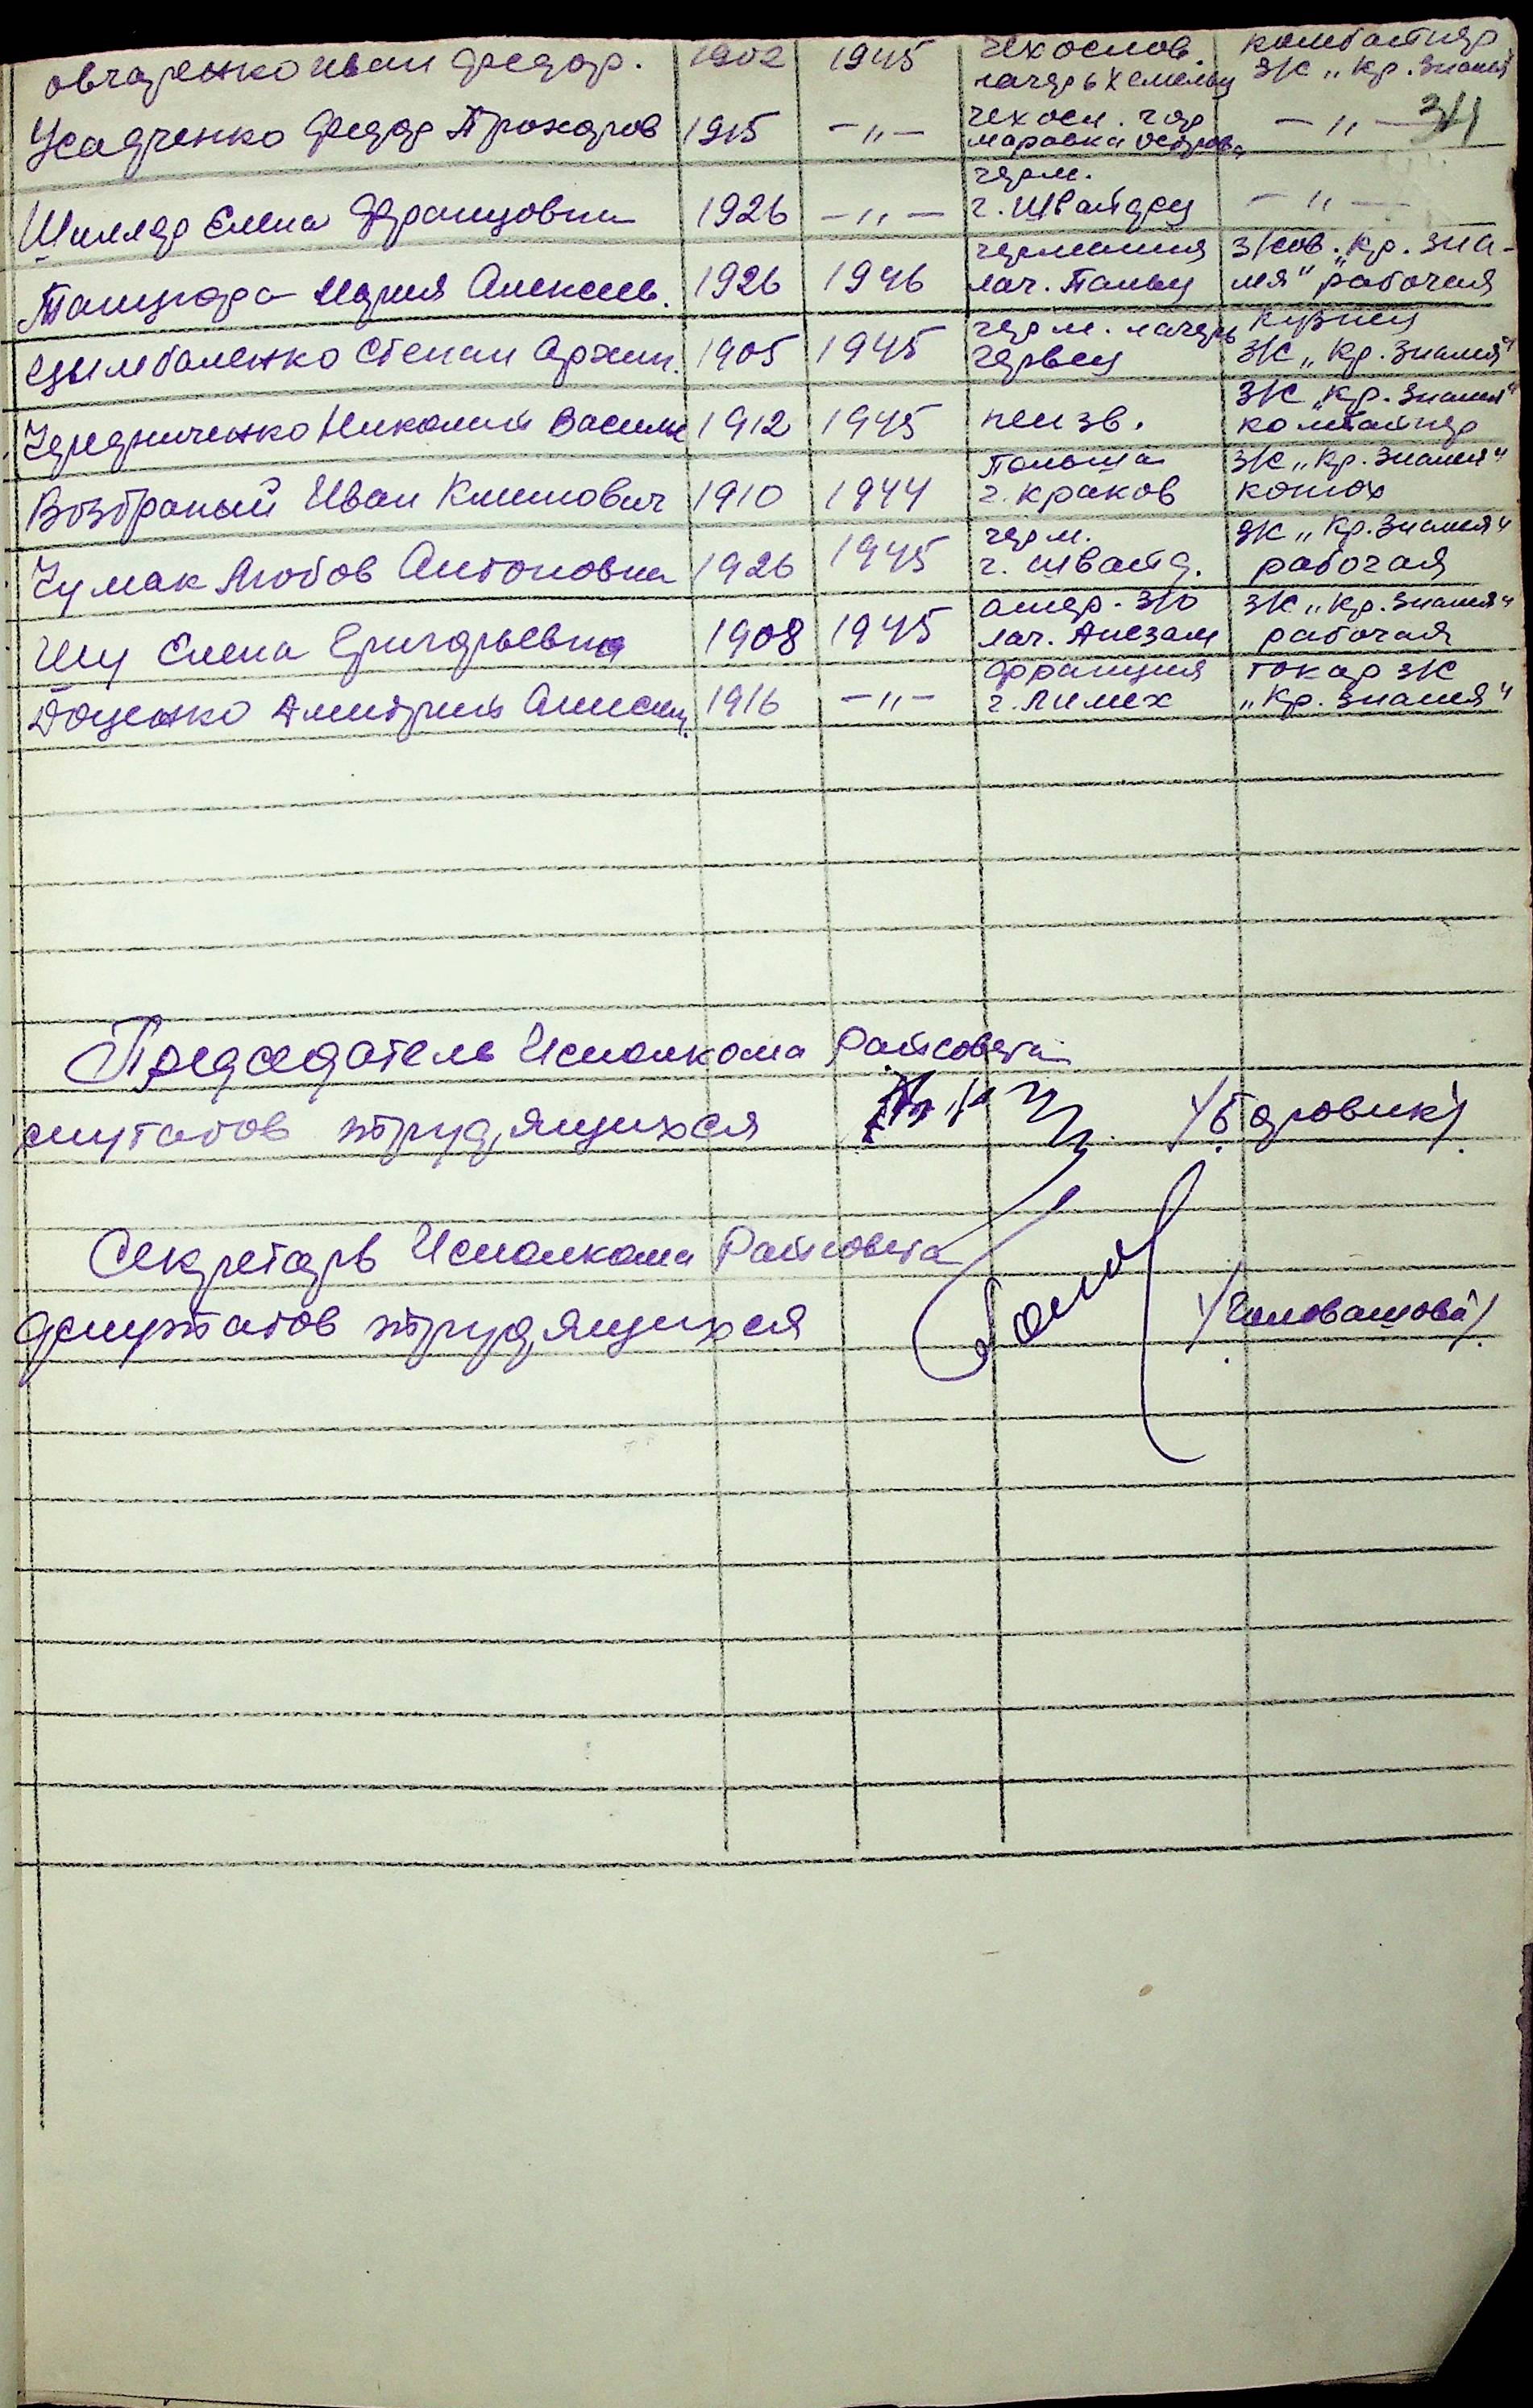 Овчаренко Иван Федор. 1902 1945 Чехослов. комбайнер
лагерь Хемельн з/с „Кр. Знамя"
Усадченко Федор Прохоров 1915 —„— Чехосл. гор —„— 34
Маровка Острова
Шиллер Елена Францовна 1926 —„— Герм. —„—
г. Швайдец
Танцюра Мария Алексеев. 1926 1946 Германия з/сов. „Кр. Зна-
лаг. Пальц мя" рабочая
Цымбаленко Степан Архип. 1905 1945 Герм. лагерь кузнец
Гервец з/с „Кр. Знамя"
Чередниченко Николай Василье 1912 1945 неизв. з/с „Кр. Знамя"
комбайнер
Возбраный Иван Климович 1910 1944 Польша з/с „Кр. Знамя"
г. Краков конюх
Чумак Любов Антоновна 1926 1945 Герм. з/с „Кр. Знамя"
г. Швайд. рабочая
Шу Елена Григорьевна 1908 1945 Амер. з/о з/с „Кр. Знамя"
лаг. Анезам рабочая
Доценко Дмитрий Анисим. 1916 —„— Франция токар з/с
г. Лимех „Кр. Знамя"
Председатель Исполкома Райсовета
епутатов трудящихся /Боровик/.
Секретарь Исполкома Райсовета
депутатов трудящихся /Головашова/.